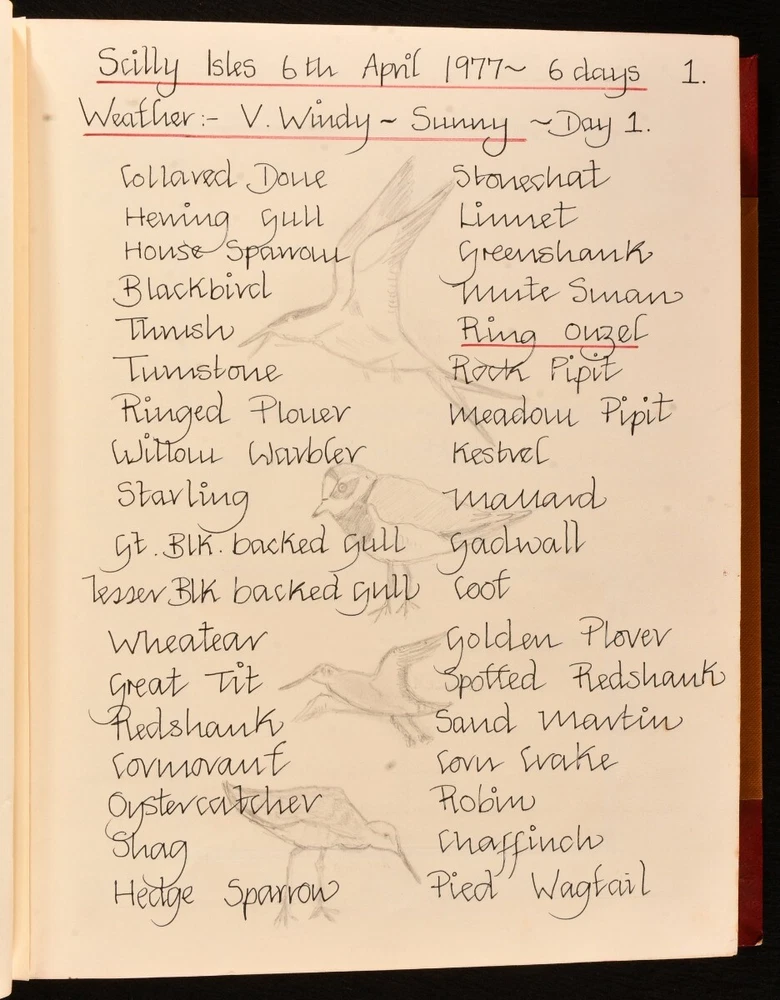 Scilly Isles 6th April 1977~ 6 days 1.
Weather:- V. Windy ~ Sunny ~ Day 1.
Collared Dove
Herring Gull
House Sparrow
Blackbird
Thrush
Turnstone
Ringed Plover
Willow Warbler
Starling
Gt. Blk. backed Gull
Lesser Blk backed Gull
Wheatear
Great Tit
Redshank
Cormorant
Oystercatcher
Shag
Hedge Sparrow
Stonechat
Linnet
Greenshank
Mute Swan
Ring Ouzel
Rock Pipit
Meadow Pipit
Kestrel
Mallard
Gadwall
Coot
Golden Plover
Spotted Redshank
Sand Martin
Corn Crake
Robin
Chaffinch
Pied Wagtail